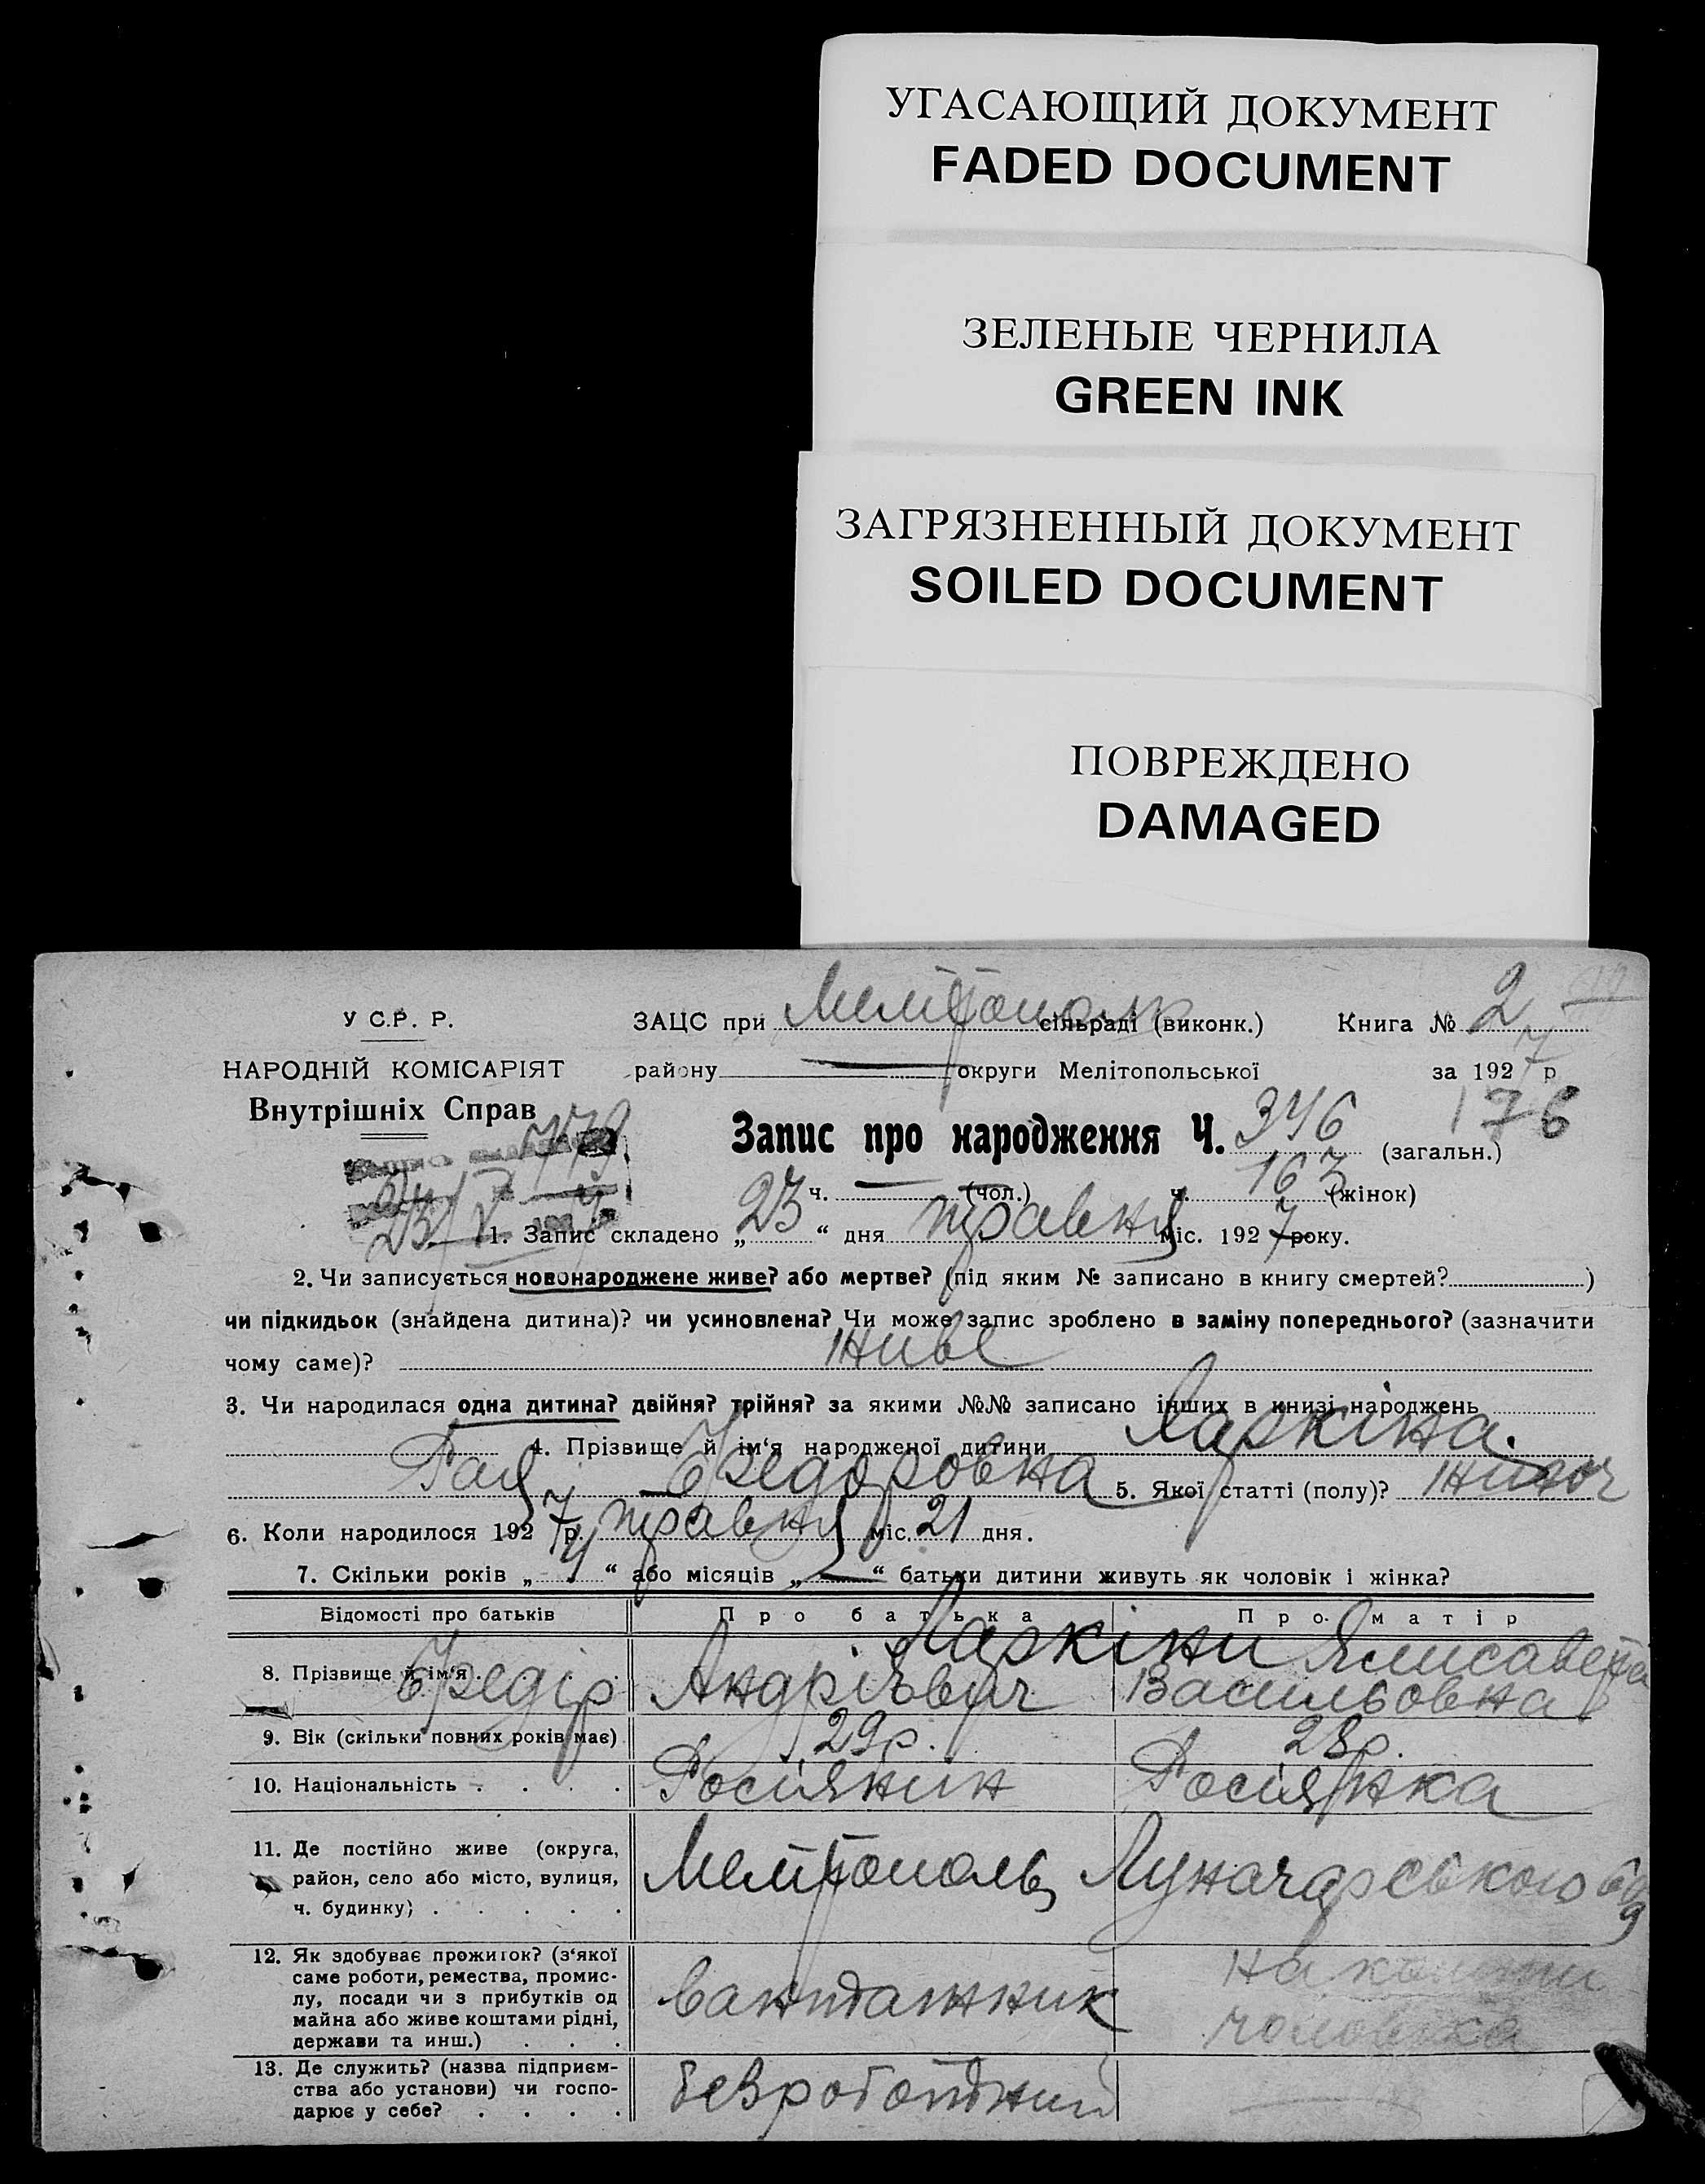 УГАСАЮЩИЙ ДОКУМЕНТ
FADED DOCUMENT
ЗЕЛЕНЫЕ ЧЕРНИЛА
GREEN INK
ЗАГРЯЗНЕННЫЙ ДОКУМЕНТ
SOILED DOCUMENT
ПОВРЕЖДЕНО
DAMAGED
У С.Р. Р.
НАРОДНІЙ КОМІСАРІЯТ
Внутрішніх Справ
779
23/V 7
ЗАЦС при Мелітополь сільраді (виконк.) Книга № 2
району — округи Мелітопольської за 1927 р
176
Запис про народження Ч. 346 (загальн.)
ч. — (чол.) ч. 163 (жінок)
1. Запис складено „23“ дня травня міс. 1927 року.
2. Чи записується новонароджене живе? або мертве? (під яким № записано в книгу смертей? )
чи підкидьок (знайдена дитина)? чи усиновлена? Чи може запис зроблено в заміну попереднього? (зазначити
чому саме)? живе
3. Чи народилася одна дитина? двійня? трійня? за якими №№ записано інших в книзі народжень
4. Прізвище й ім‘я народженої дитини Ларкіна.
Рая Федоровна 5. Якої статті (полу)? жіноч
6. Коли народилося 1927 р. травня міс. 21 дня.
7. Скільки років „4“ або місяців „—“ батьки дитини живуть як чоловік і жінка?
Відомості про батьків Про батька Про матір
Ларкіни Єлисавета
8. Прізвище й ім‘я Федір Андрієвич Васильовна
9. Вік (скільки повних років має) 29р. 28р.
10. Національність Росіянин Росіянка
11. Де постійно живе (округа,
район, село або місто, вулиця,
ч. будинку) Мелітополь, Луначарського
12. Як здобуває прожиток? (з‘якої
саме роботи, ремества, промис-
лу, посади чи з прибутків од
майна або живе коштами рідні,
держави та инш.) вантажник на кошти
чоловіка
13. Де служить? (назва підприєм-
ства або установи) чи госпо-
дарює у себе? безроботний